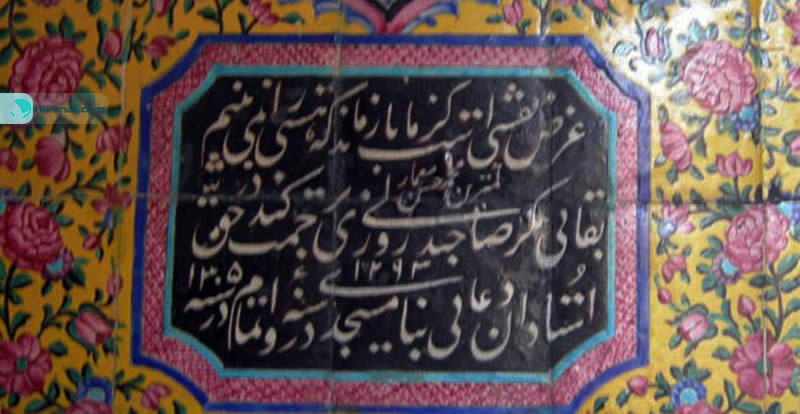 غرض نقشی است کز ما باز ماند که هستی را نمی بینم
کمترین محمد حسن معمار
بقائی مگر صاحبدلی روزی برحمت کند در حق
استادان دعائی بنای مسجد در سنه ۱۲۹۳ و اتمام در سنه ۱۳۰۵